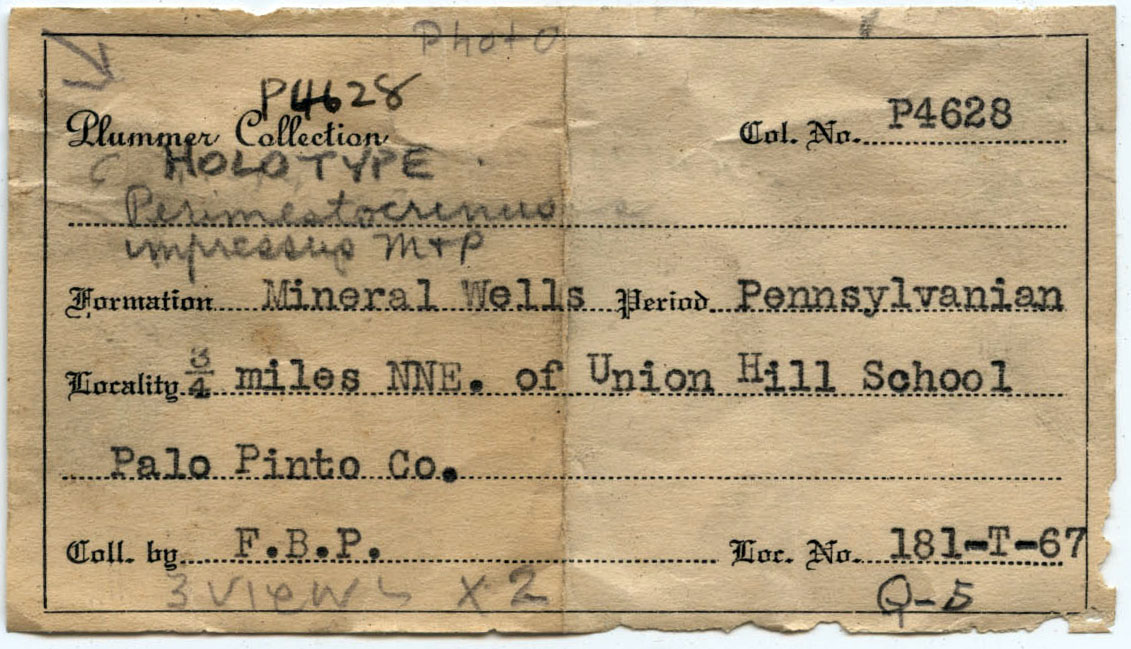 Photo
P4628
Plummer Collection
Col. No. P4628
HOLOTYPE
Perimestocrinus
impressus M+P
Formation Mineral Wells Period Pennsylvanian
Locality 3/4 miles NNE. of Union Hill School
Palo Pinto Co.
Coll. by F.B.P. Loc. No. 181-T-67
3 views x2 Q-5